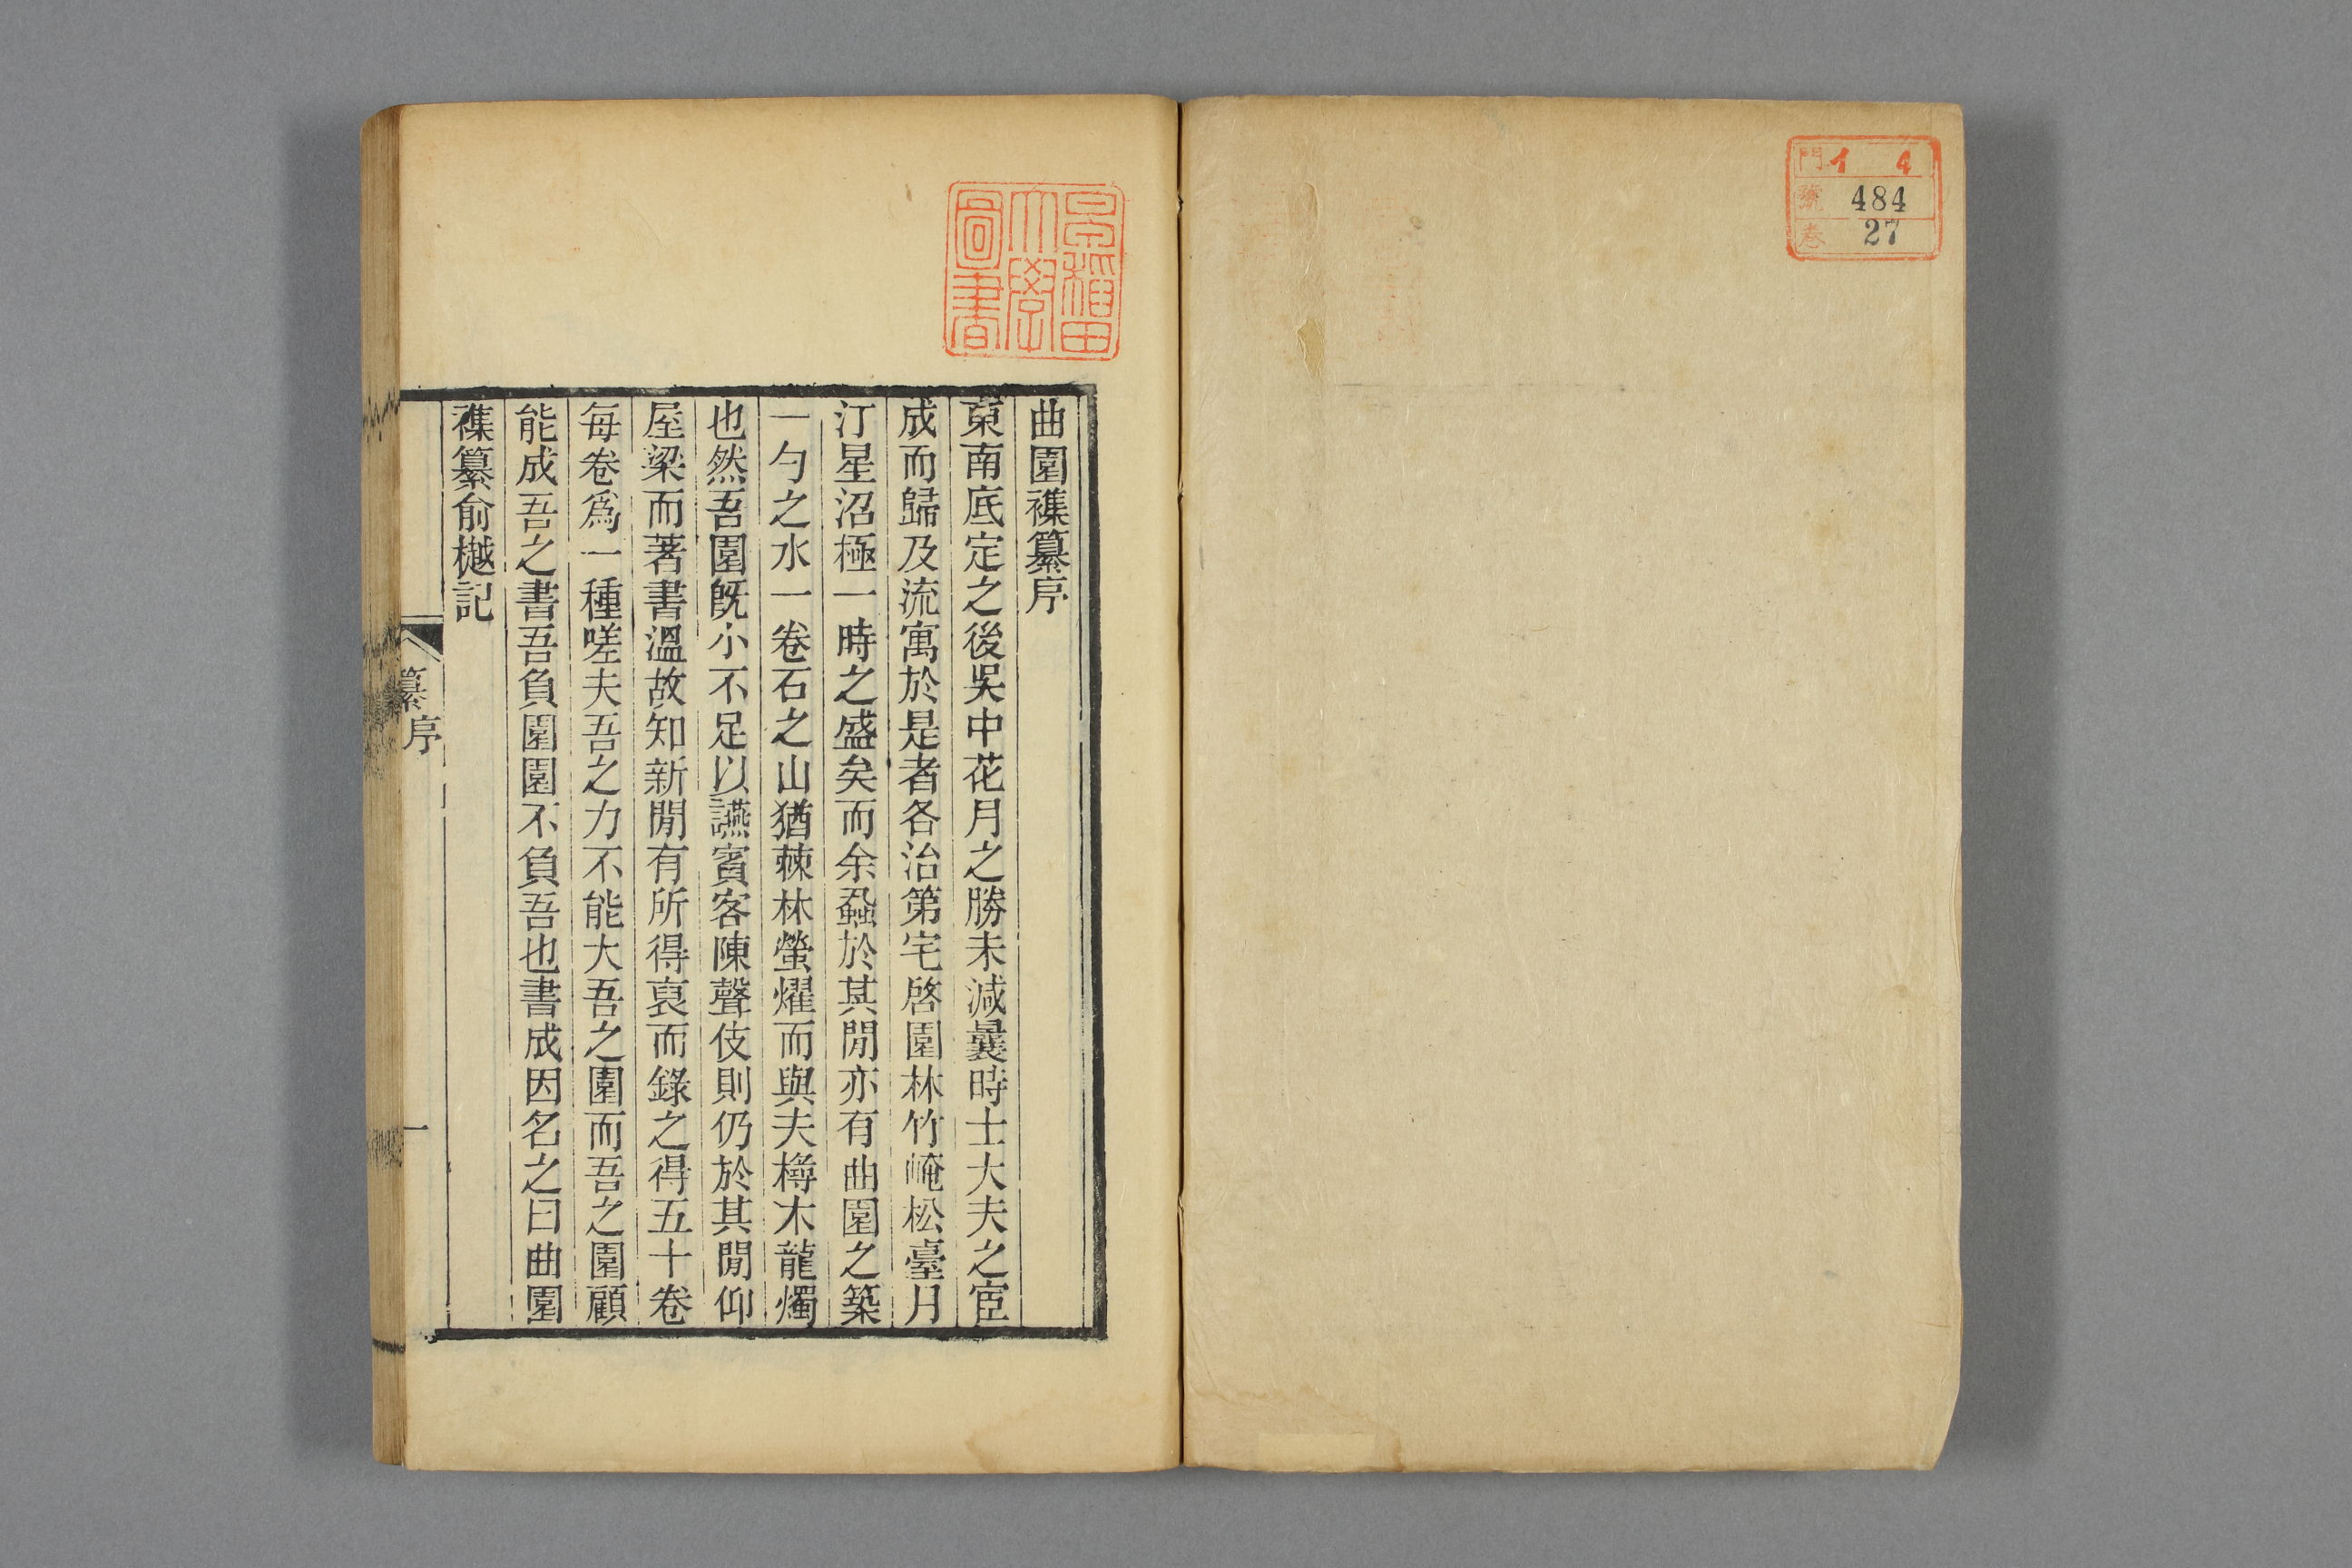 門 イ 4
號 484
卷 27
早稻田
大學
圖書
曲園襍纂序
東南底定之後吳中花月之勝未減曩時士大夫之宦
成而歸及流寓於是者各治第宅啓園林竹崦松臺月
汀星沼極一時之盛矣而余蝨於其閒亦有曲園之築
一勺之水一卷石之山猶蕀林螢燿而與夫樳木龍燭
也然吾園旣小不足以讌賓客陳聲伎則仍於其閒仰
屋梁而著書溫故知新閒有所得裒而錄之得五十卷
每卷爲一種嗟夫吾之力不能大吾之園而吾之園顧
能成吾之書吾負園園不負吾也書成因名之曰曲園
襍纂俞樾記
纂序
一